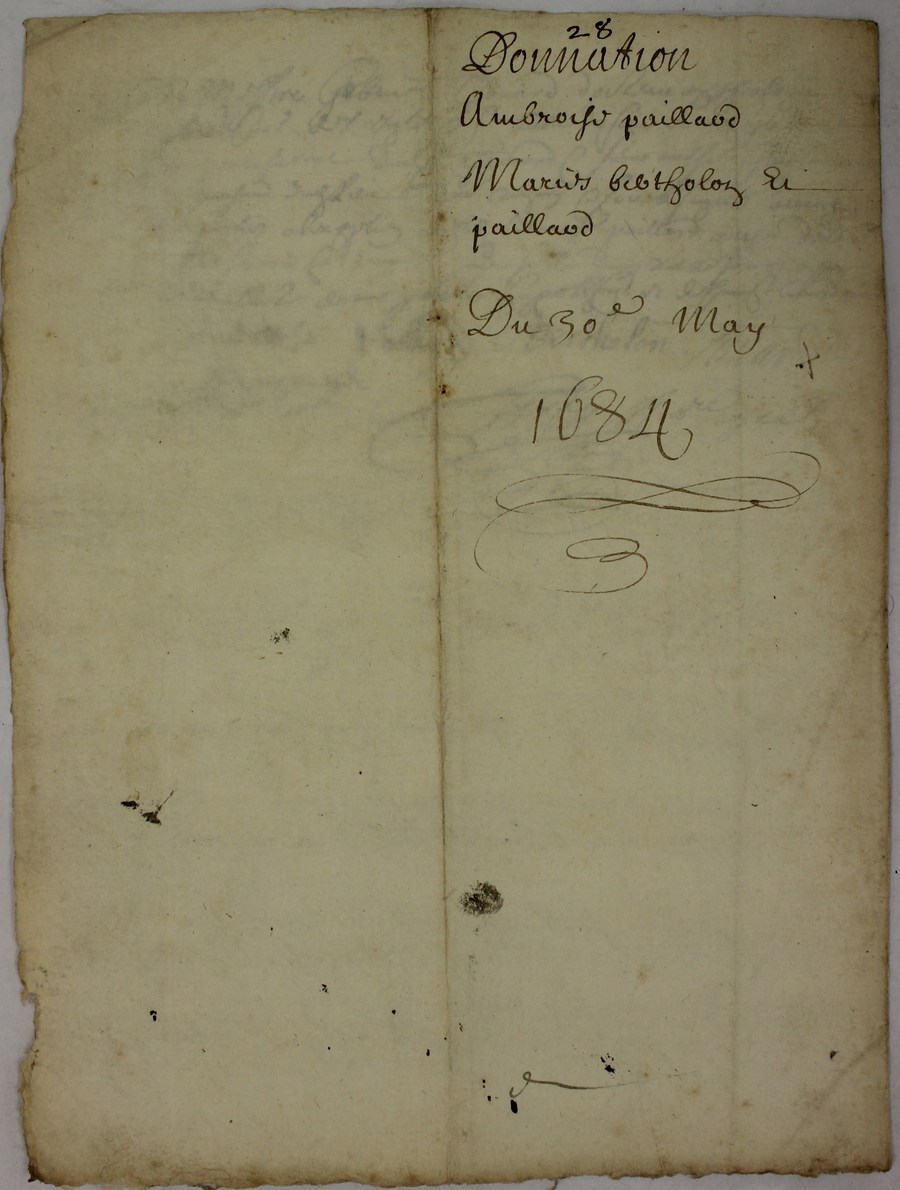 28
Donnation
Ambroise paillard
Bertholon Et
paillard
Du 30e May
1684